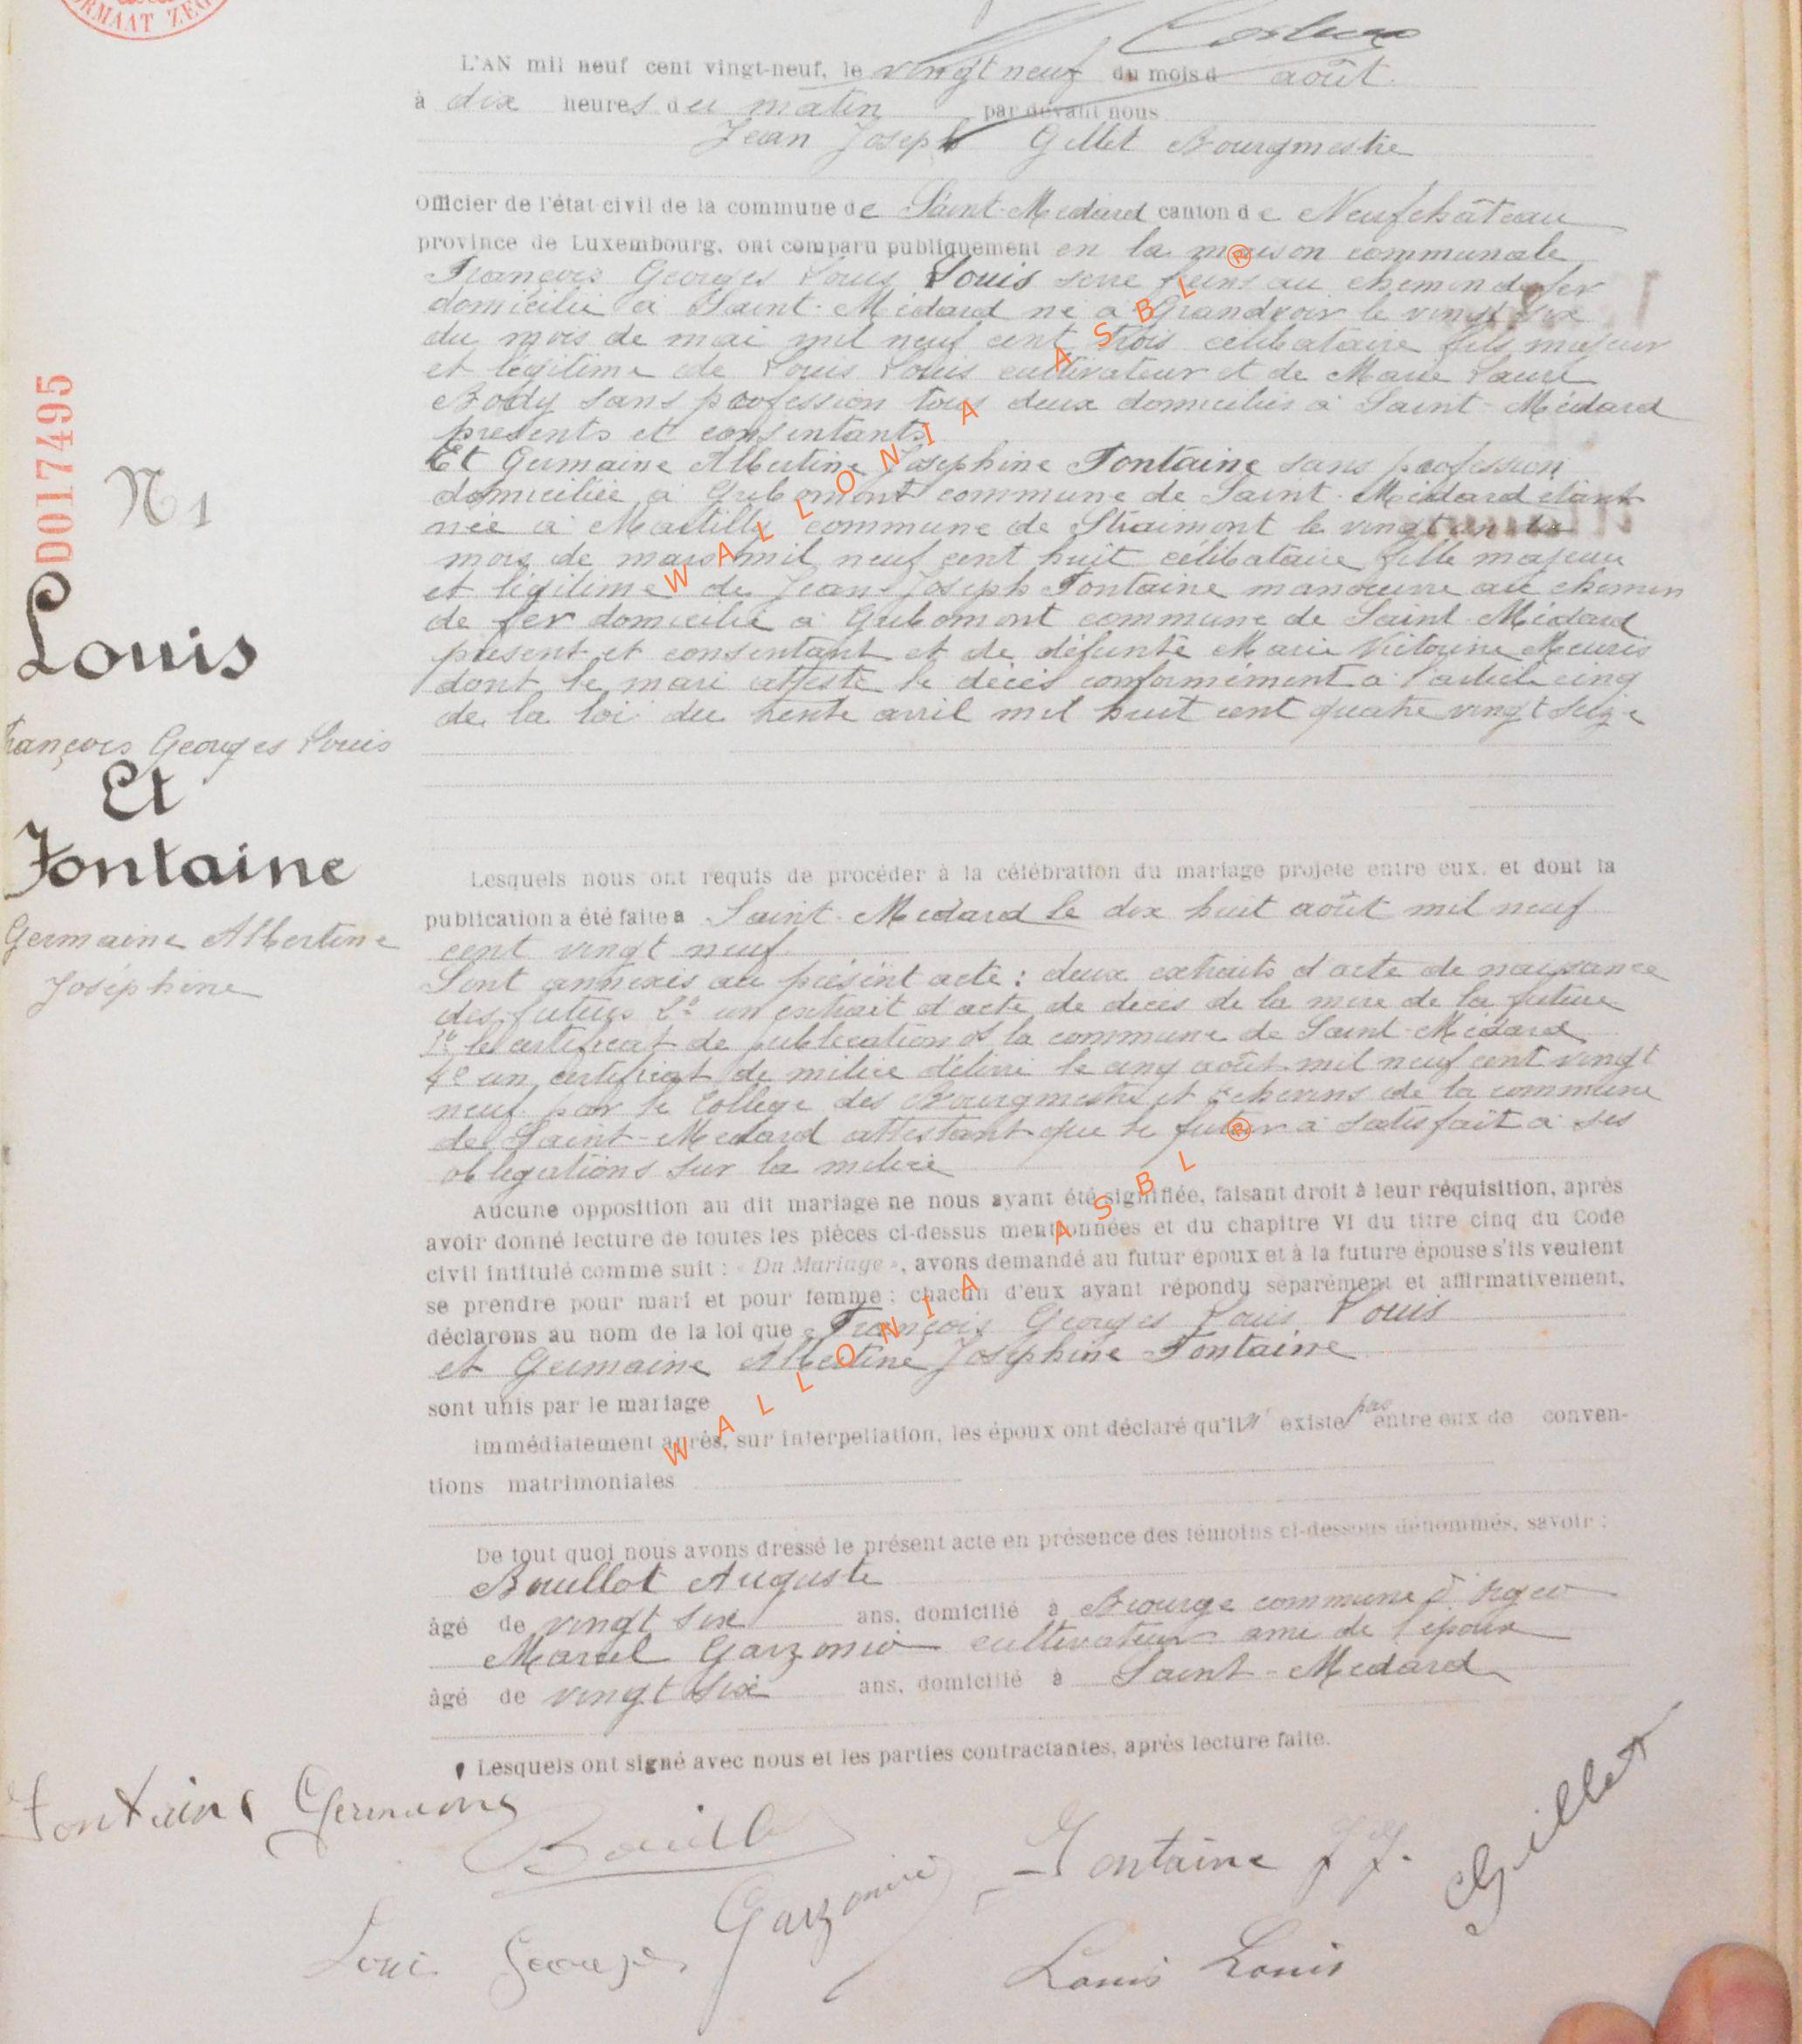 RMAAT ZEG
L'AN mil neuf cent vingt-neuf, le vingt neuf du mois d août
à dix heures du matin par devant nous
Jean Joseph Gillet Bourgmestre
Officier de l'état civil de la commune de Saint-Médard canton de Neufchâteau
province de Luxembourg, ont comparu publiquement en la maison communale
François Georges Louis Louis serre freins au chemin de fer
domicilié à Saint-Médard né à Grandvoir le vingt six
du mois de mai mil neuf cent trois célibataire fils majeur
et légitime de Louis Louis cultivateur et de Marie
Body sans profession tous deux domiciliés à Saint-Médard
présents et consentants
Et Germaine Albertine Joséphine Fontaine sans profession
domiciliée à Gribomont commune de Saint-Médard étant
née à Martilly commune de Straimont le vingt un du
mois de mars mil neuf cent huit célibataire fille majeure
et légitime de Jean-Joseph Fontaine manoeuvre au chemin
de fer domicilié à Gribomont commune de Saint-Médard
présent et consentant et de défunte Marie Victorine Meuris
dont le mari atteste le décès conformément à l'article cinq
de la loi du trente avril mil huit cent quatre vingt seize
D017495
N 1
Louis
François Georges Louis
Et
Fontaine
Germaine Albertine
Joséphine
Lesquels nous ont requis de procéder à la célébration du mariage projeté entre eux, et dont la
publication a été faite à Saint-Médard le dix huit août mil neuf
cent vingt neuf
Sont annexés au présent acte : deux extraits d'acte de naissance
des futurs 2° un extrait d'acte de décès de la mère de la future
le certificat de publication de la commune de Saint-Médard
4° un certificat de milice délivré le cinq août mil neuf cent vingt
neuf par le Collège des Bourgmestre et Echevins de la commune
de Saint-Médard attestant que le futur a satisfait à ses
obligations sur la milice
Aucune opposition au dit mariage ne nous ayant été signifiée, faisant droit à leur réquisition, après
avoir donné lecture de toutes les pièces ci-dessus mentionnées et du chapitre VI du titre cinq du Code
civil intitulé comme suit : « Du Mariage », avons demandé au futur époux et à la future épouse s'ils veulent
se prendre pour mari et pour femme : chacun d'eux ayant répondu séparément et affirmativement,
déclarons au nom de la loi que François Georges Louis Louis
et Germaine Albertine Joséphine Fontaine
sont unis par le mariage
Immédiatement après, sur interpellation, les époux ont déclaré qu'il n'existe pas entre eux de conven-
tions matrimoniales
De tout quoi nous avons dressé le présent acte en présence des témoins ci-dessous dénommés, savoir :
Bouillot Auguste
âgé de vingt six ans, domicilié à Biourge commune d'Orgeo
Marcel Garzonio cultivateur ami de l'époux
âgé de vingt six ans, domicilié à Saint-Médard
Lesquels ont signé avec nous et les parties contractantes, après lecture faite.
Fontaine Germaine
Fontaine J J.
Gillet
Garzonio
Louis Georges
Louis Louis
WALLONIA ASBL ®
WALLONIA ASBL ®